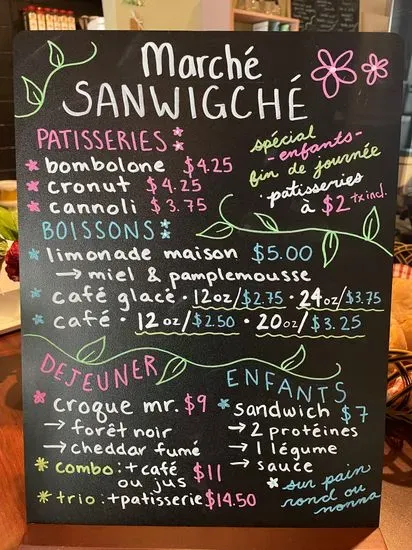 Marché
SANWIGCHÉ
PATISSERIES:
bombolone $4.25
cronut $4.25
cannoli $3.75
spécial
-enfants-
fin de journée
•patisseries
à $2 tx incl.
BOISSONS:
limonade maison $5.00
→ miel & pamplemousse
café glacé • 12oz/$2.75 • 24oz/$3.75
café • 12oz/$2.50 • 20oz/$3.25
DEJEUNER
croque mr. $9
→ forêt noir
→ cheddar fumé
combo: + café
ou jus $11
trio: + patisserie $14.50
ENFANTS
sandwich $7
→ 2 protéines
→ 1 légume
→ sauce
sur pain
rond ou
nonna